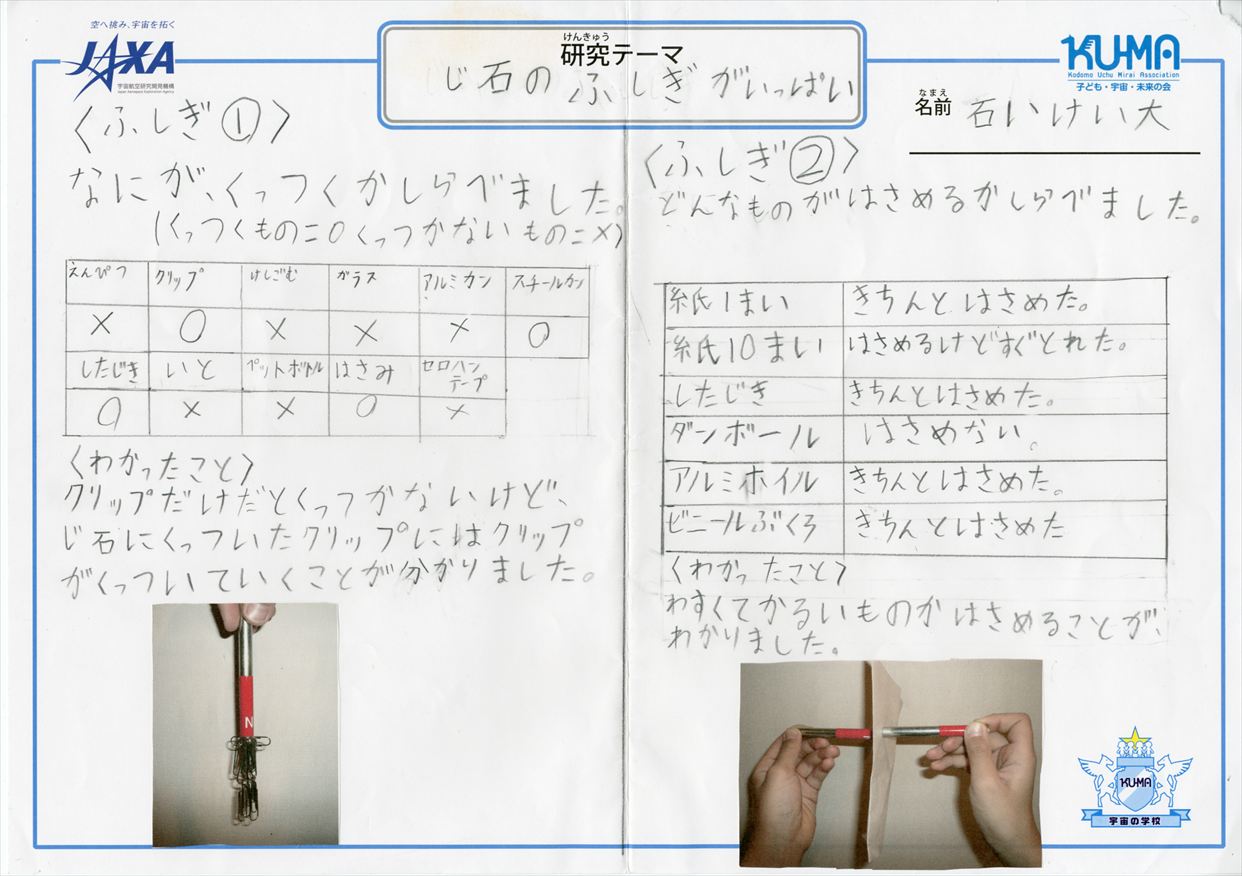 空へ挑み、宇宙を拓く
JAXA
宇宙航空研究開発機構
Japan Aerospace Exploration Agency
けんきゅう
研究テーマ
じ石のふしぎがいっぱい
KU-MA
Kodomo Uchu Mirai Association
子ども・宇宙・未来の会
なまえ
名前 石いけい大
〈ふしぎ①〉
なにが、くっつくかしらべました。
(くっつくもの=○くっつかないもの=×)
えんぴつ クリップ けしごむ ガラス アルミカン スチールカン
× ○ × × × ○
したじき いと ペットボトル はさみ セロハンテープ
○ × × ○ ×
〈わかったこと〉
クリップだけだとくっつかないけど、
じ石にくっついたクリップにはクリップ
がくっついていくことが分かりました。
N
〈ふしぎ②〉
どんなものがはさめるかしらべました。
紙1まい きちんとはさめた。
紙10まい はさめるけどすぐとれた。
したじき きちんとはさめた。
ダンボール はさめない。
アルミホイル きちんとはさめた。
ビニールぶくろ きちんとはさめた
〈わかったこと〉
わすくてかるいものがはさめることが、
わかりました。
KU-MA
宇宙の学校